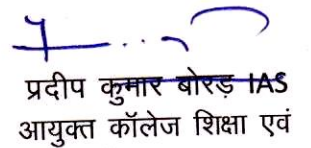 प्रदीप कुमार बोरड़ IAS
आयुक्त कॉलेज शिक्षा एवं